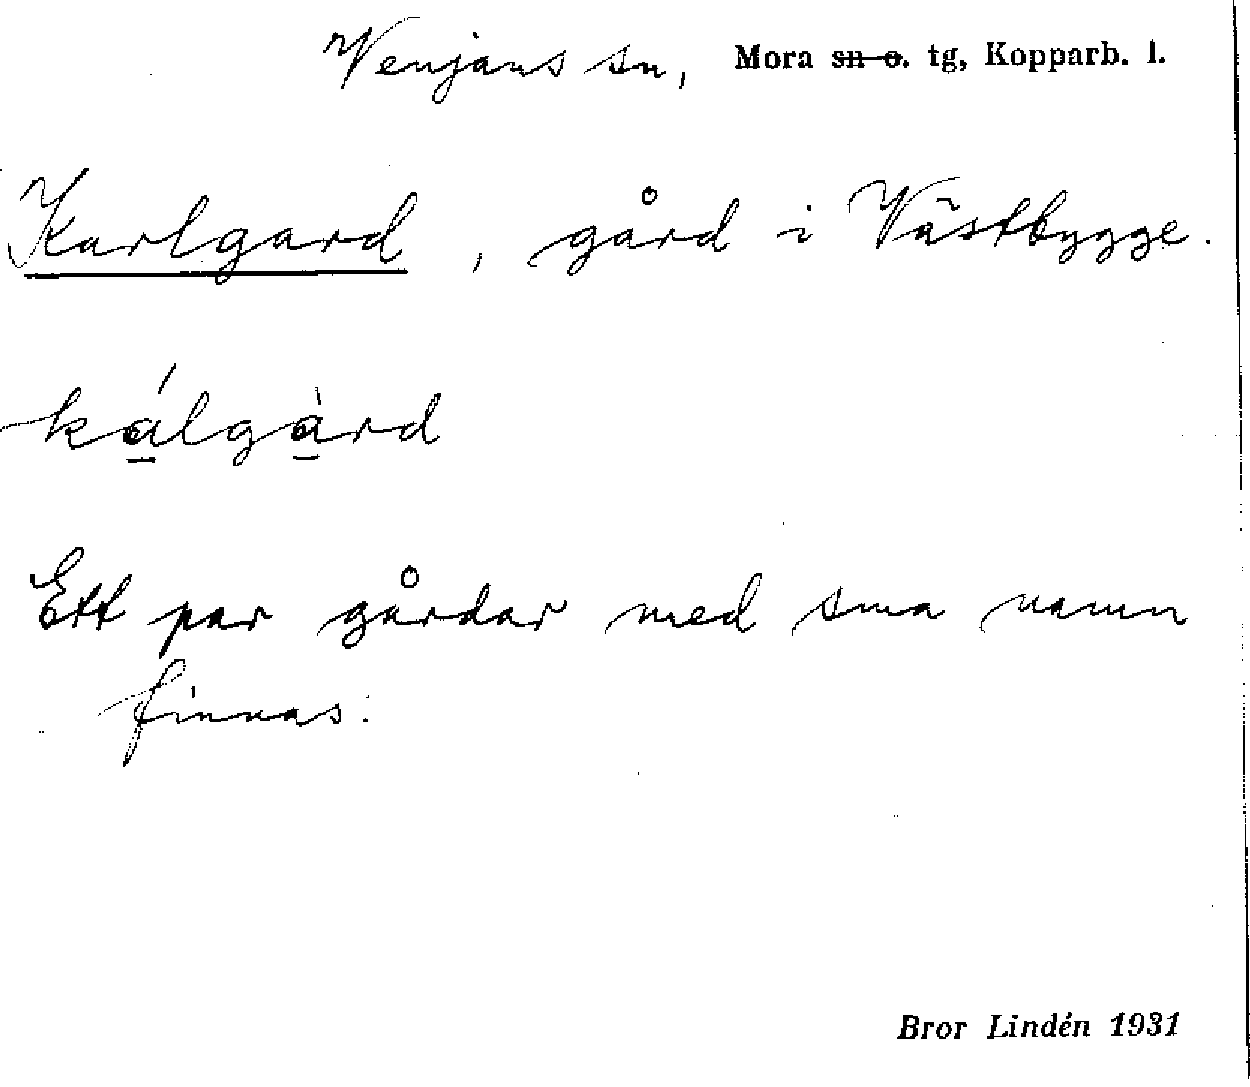 Venjans sn, Mora ~~sn o.~~ tg, Kopparb. l.
Karlgard, gård i Västbygge.
kálgàrd
Ett par gårdar med sma namn
finnas.
Bror Lindén 1931